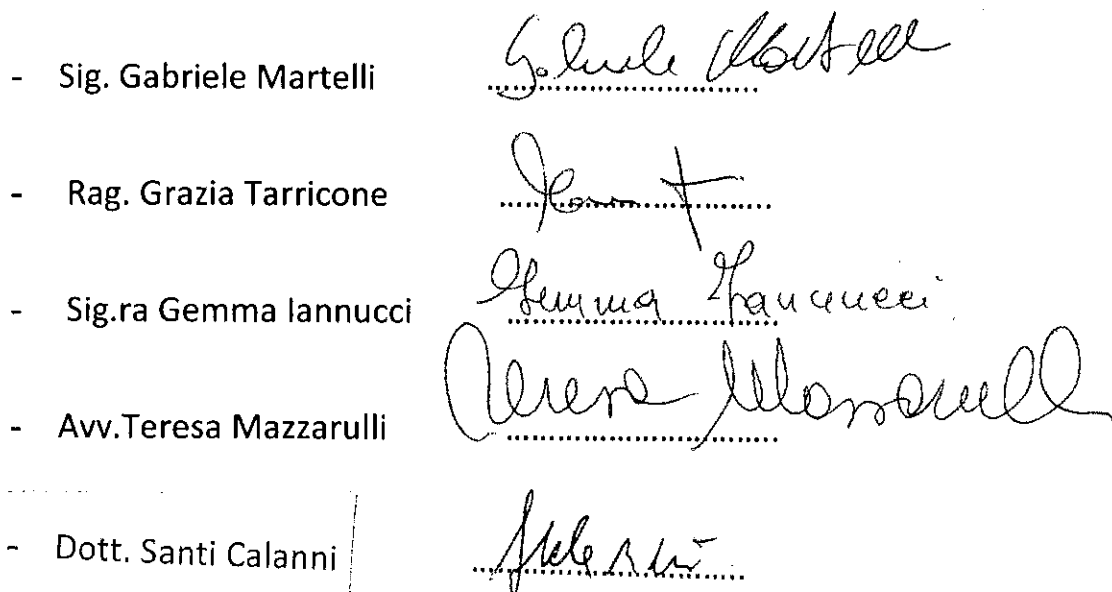 - Sig. Gabriele Martelli Gabriele Martelli
- Rag. Grazia Tarricone
- Sig.ra Gemma Iannucci Gemma Iannucci
- Avv.Teresa Mazzarulli Teresa Mazzarulli
- Dott. Santi Calanni